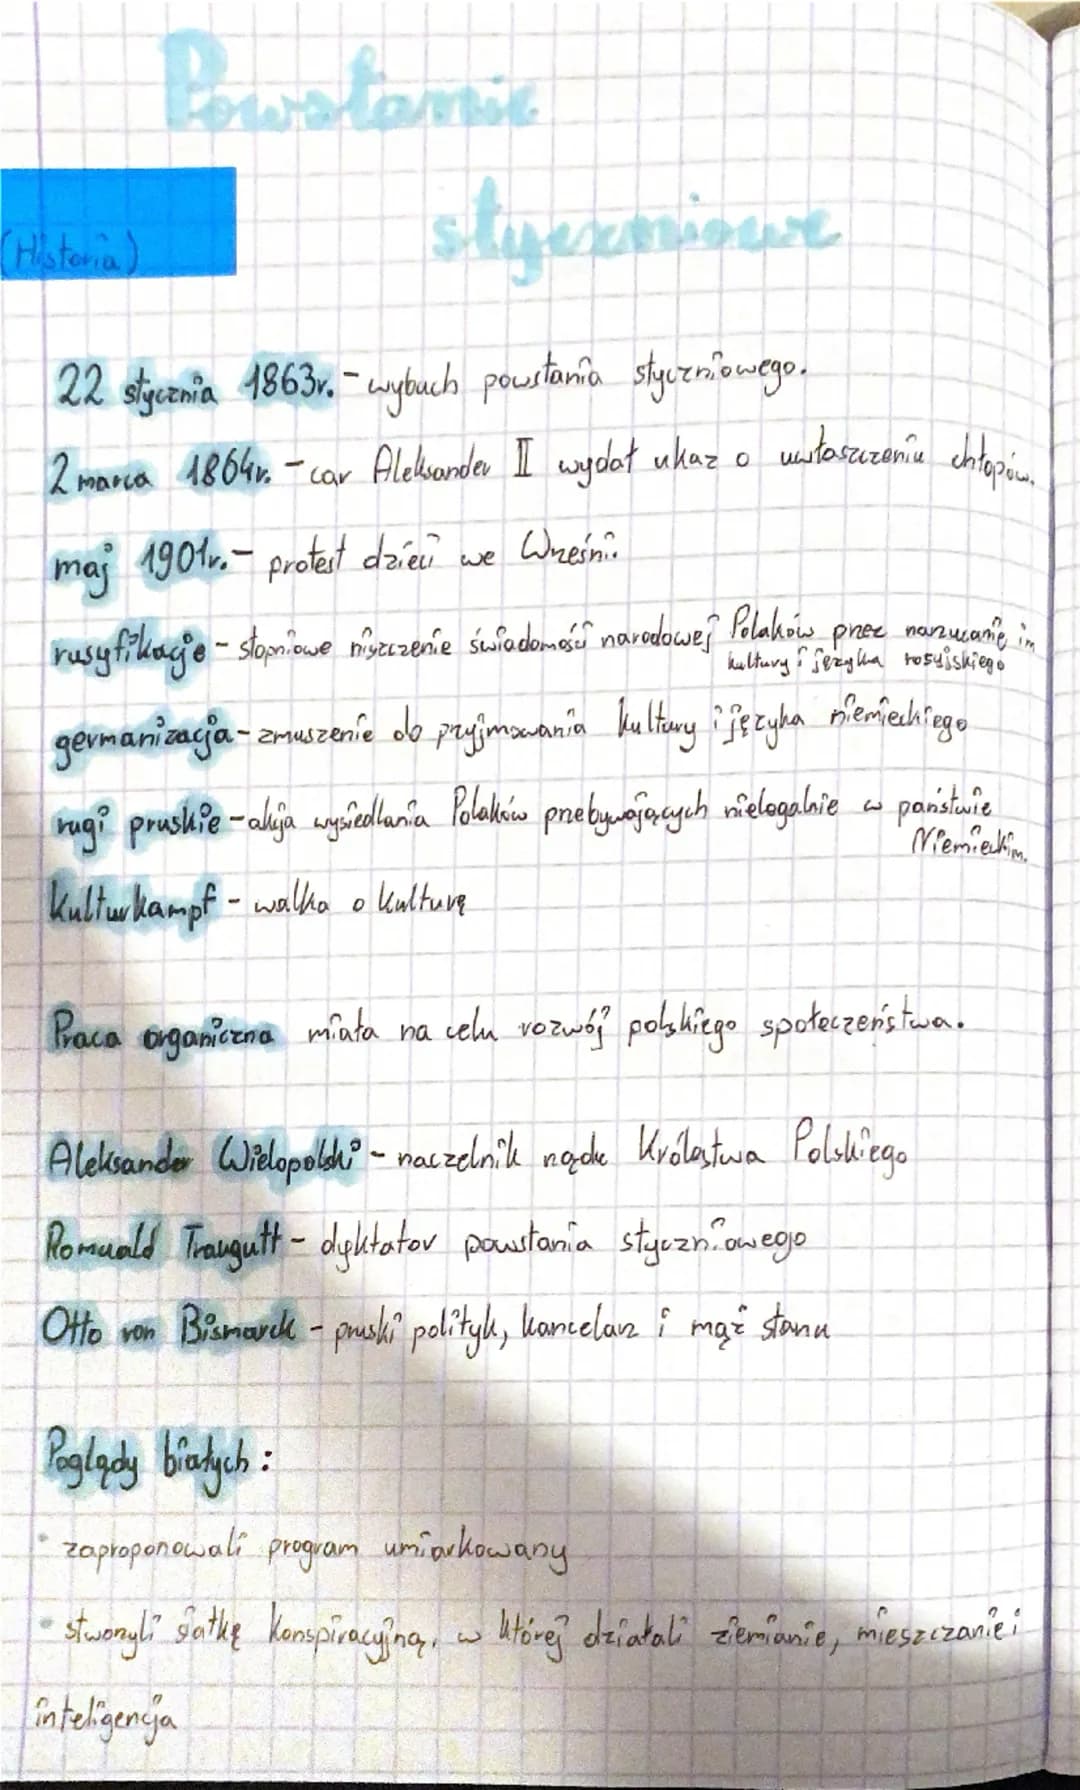 Powstanie
styczniowe
(Historia)
22 stycznia 1863r. - wybuch powstania styczniowego.
2 marca 1864r. - car Aleksander II wydał ukaz o uwłaszczeniu chłopów.
maj 1901r. - protest dzieci we Wrześni.
rusyfikacje - stopniowe niszczenie świadomości narodowej Polaków przez narzucanie im
kultury i języka rosyjskiego
germanizacja - zmuszenie do przyjmowania kultury i języka niemieckiego
rugi pruskie - akcja wysiedlania Polaków przebywających nielegalnie w państwie
Niemieckim.
Kulturkampf - walka o kulturę
Praca organiczna miała na celu rozwój polskiego społeczeństwa.
Aleksander Wielopolski - naczelnik rządu Królestwa Polskiego
Romuald Traugutt - dyktator powstania styczniowego
Otto von Bismarck - pruski polityk, kanclerz i mąż stanu
Poglądy białych:
• zaproponowali program umiarkowany
• stworzyli siatkę konspiracyjną, w której działali ziemianie, mieszczanie i
inteligencja